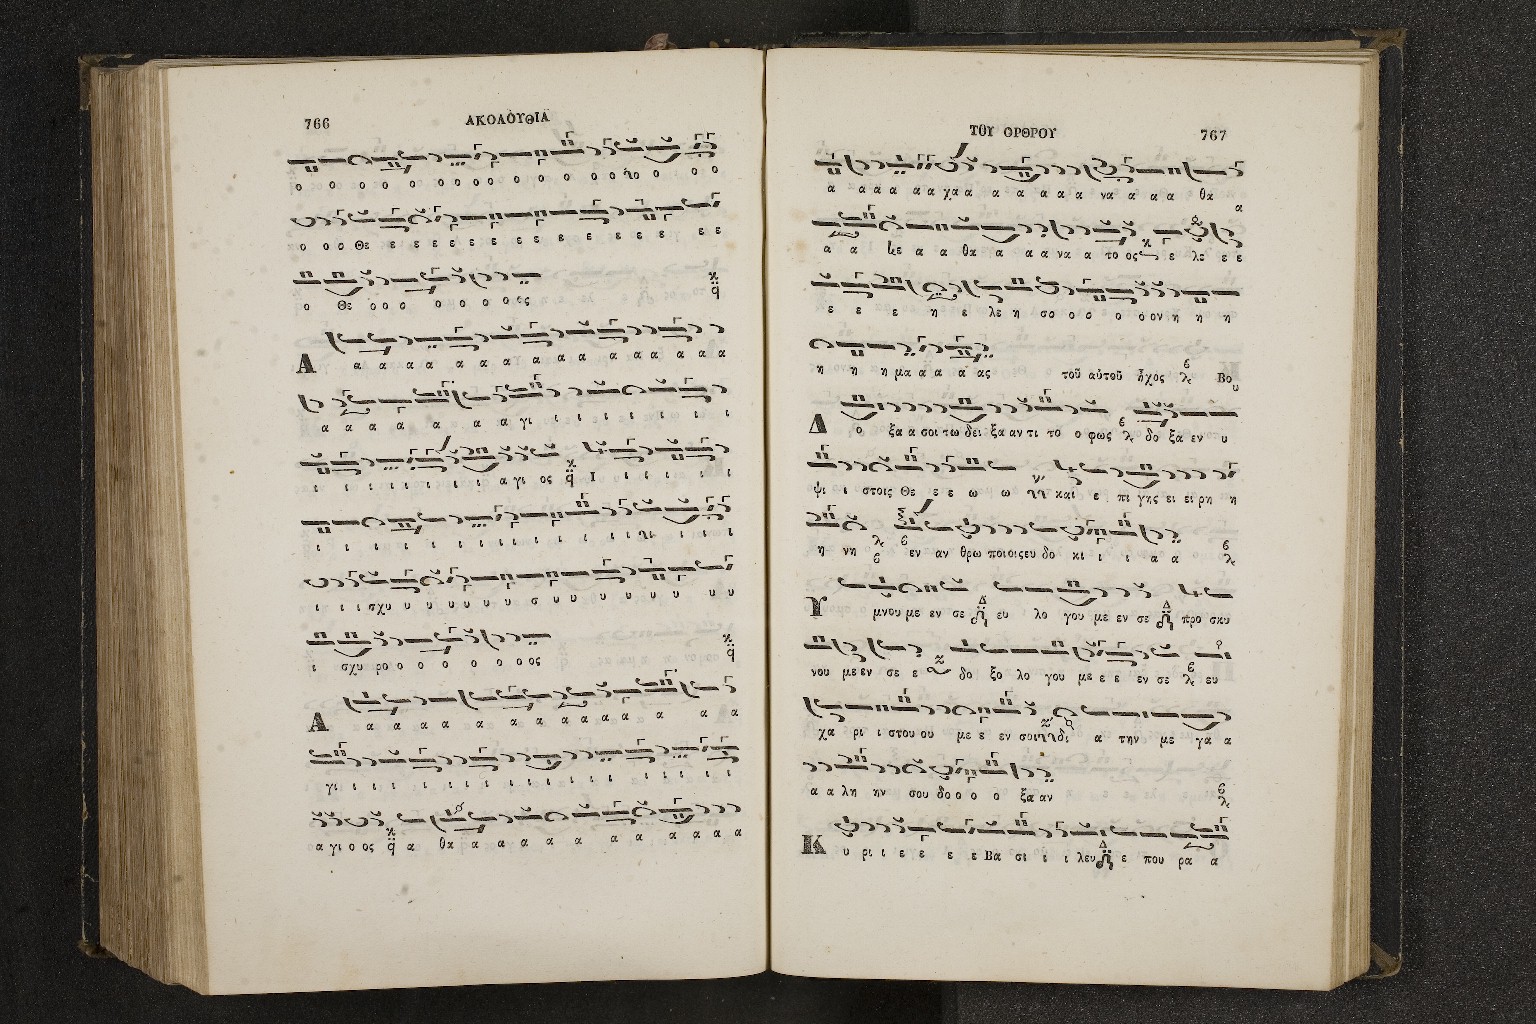 766
ΑΚΟΛΟΥΘΙΑ
ο ο ο ο ο ο ο ο ο ο ο ο ο ο ο ο ο ο ο
ο ο ο Θε ε ε ε ε ε ε ε ε ε ε ε ε ε ε ε
ο Θε ο ο ο ο ο ο ο ες
Α α α α α α α α α α α α α α α α
α α α α α α α γι ι ι ι ι ι ι ι
ι ι ι ι ι ι ι ι α γι ος Ι ι ι ι ι ι
ι ι ι ι ι ι ι ι ι ι ι ι ι ι ι ι
ι ι ι σχυ υ υ υ υ υ υ σ υ υ υ υ υ υ υ υ
ι σχυ ρο ο ο ο ο ο ο ο ος
Α α α α α α α α α α α α α α α α
γι ι ι ι ι ι ι ι ι ι ι ι ι ι ι
α γι ο ος α θα α α α α α α α α α α α
ΤΟΥ ΟΡΘΡΟΥ
767
α α α α α α χα α α α α α α να α α α θα α
α α κε α α θα α α α να α το ος ε λε ε ε
ε ε ε η ε λε η σο ο ο ο ο ον η η η
η η η μα α α α ας τοῦ αὐτοῦ ἦχος Βου
Δ ο ξα α σοι τω δει ξα αν τι το ο φως δο ξα εν υ
ψι ι στοις Θε ε ε ω ω και ε πι γης ει ει ρη η
η νη εν αν θρω ποιοις ευ δο κι ι ι α α
Υ μνου με εν σε ευ λο γου με εν σε προ σκυ
νου με εν σε ε δο ξο λο γου με ε ε εν σε ευ
χα ρι ι στου ου με ε εν σοι δι α την με γα α
α α λη ην σου δο ο ο ο ξα αν
Κ υ ρι ι ε ε ε ε Βα σι ι ι λευ ε που ρα α